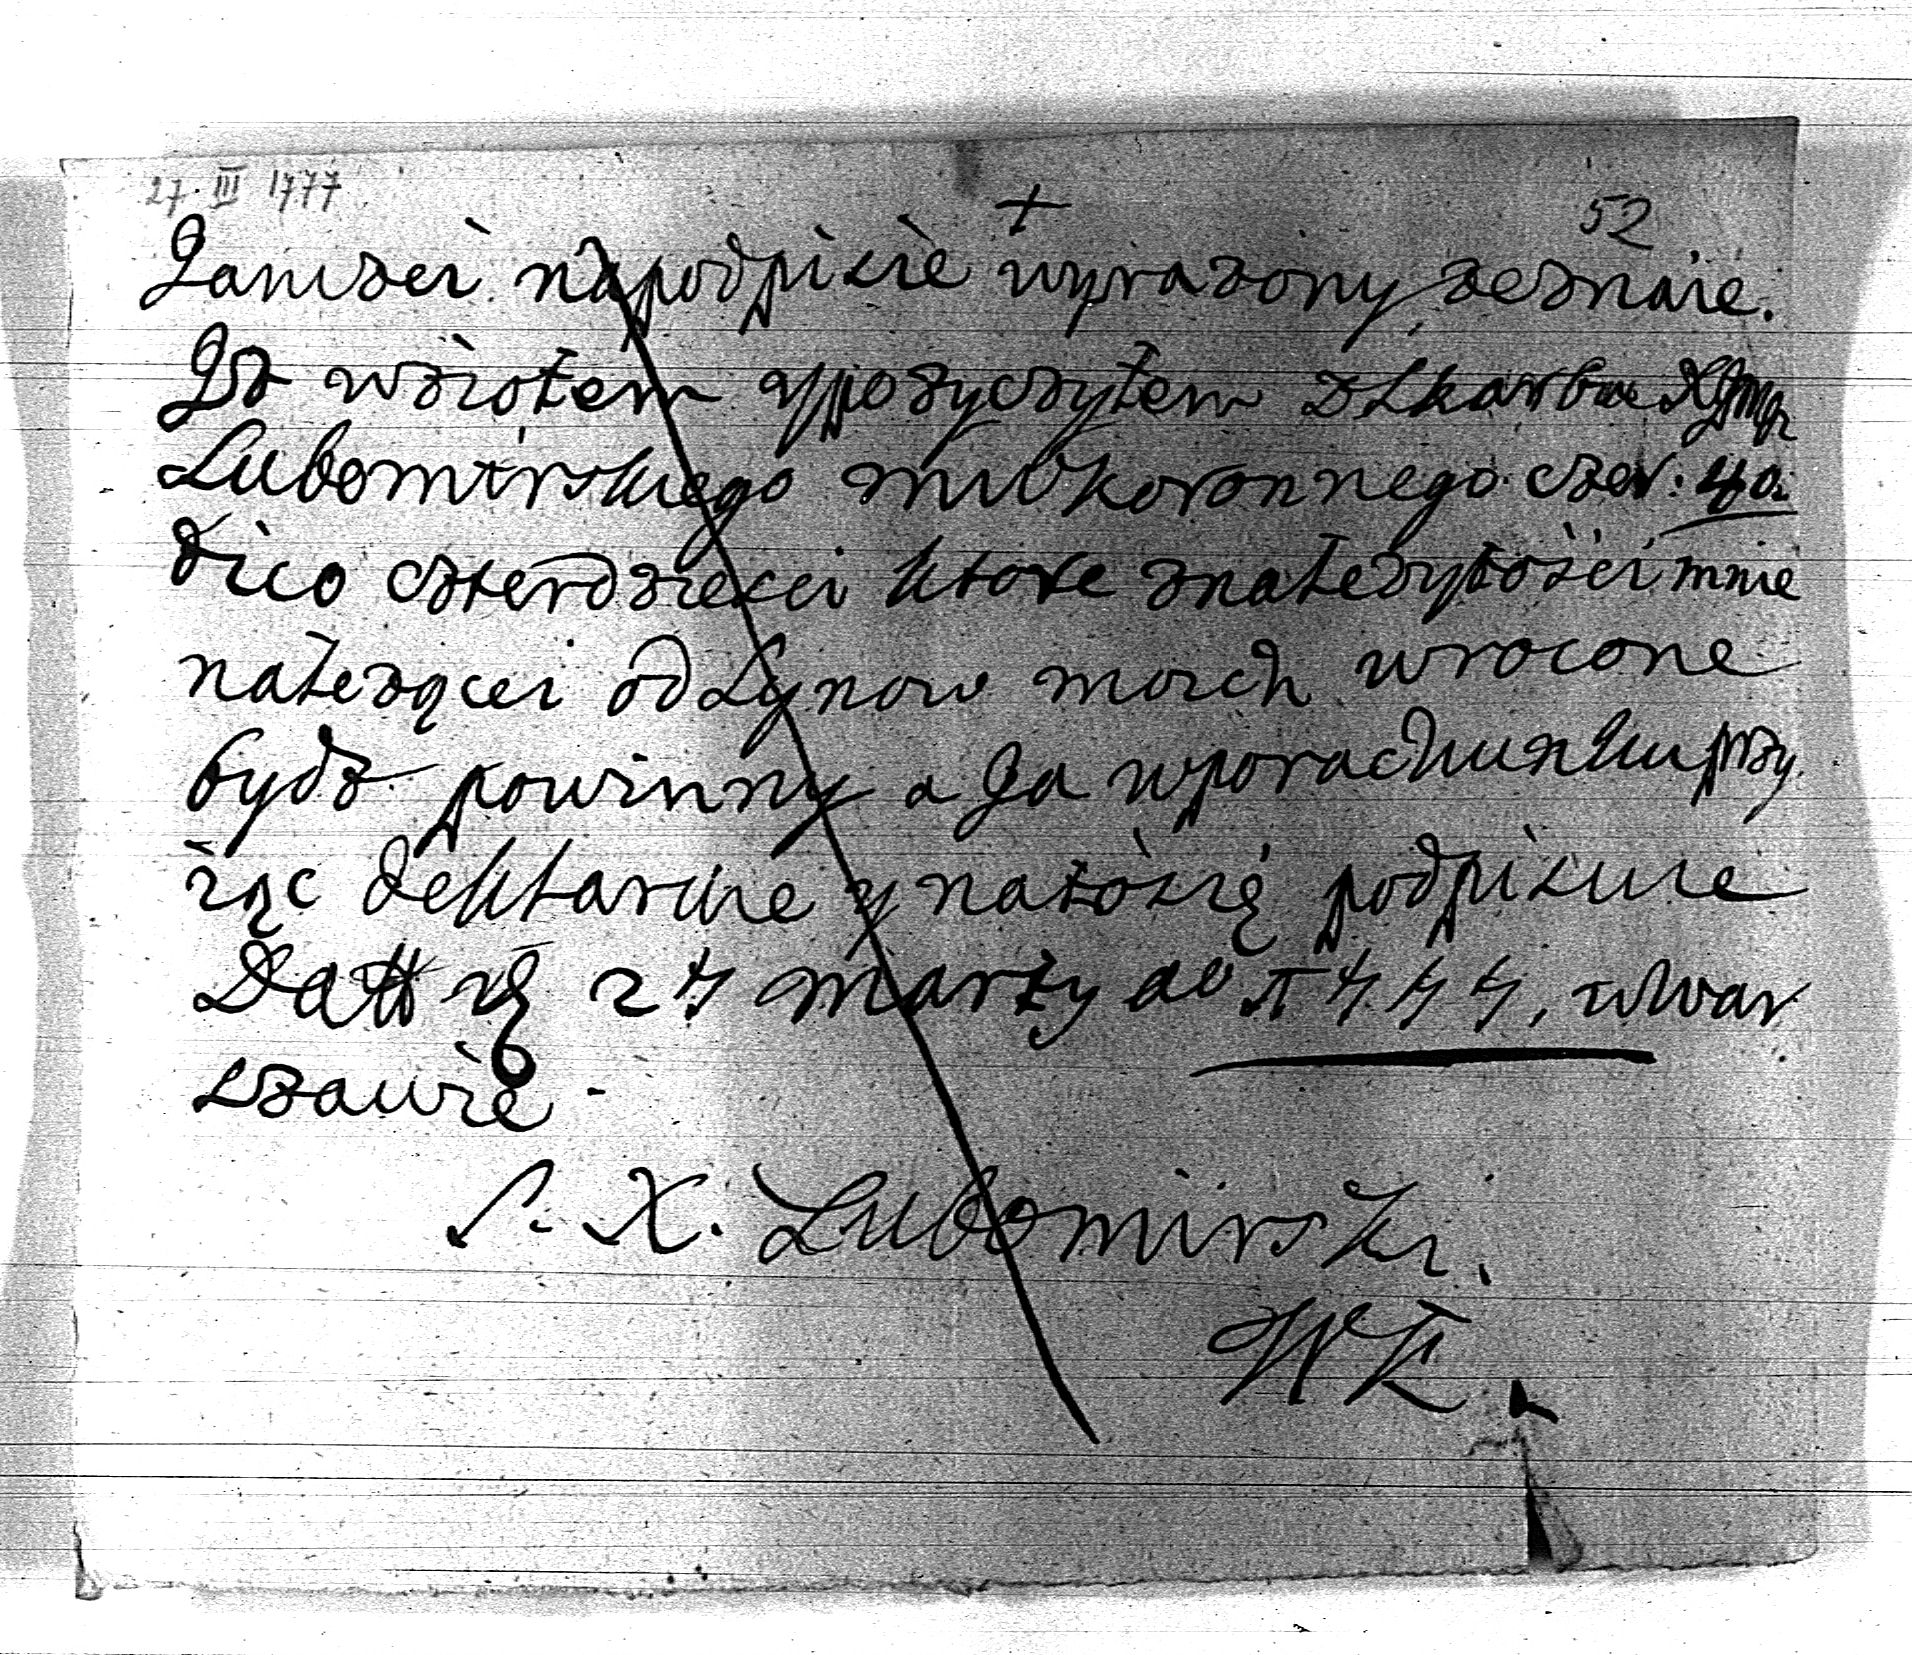 27. III 1777
+
52
Ja niżei napodpisie wyrażony zeznaie.
Jż wziołem ypożyczyłem zskarbu XJmę
Lubomirskiego mwKoronnego. czer: 40.
dico czterdziesci ktore znależytości mnie
należącei od synow moich wrocone
bydz powinny a Ja wporachunku przy
iąc deklaruie y natosię podpisuie
Datt 27 marty ao 1777, wWar
szawie -
S. X. Lubomirski.
WK.